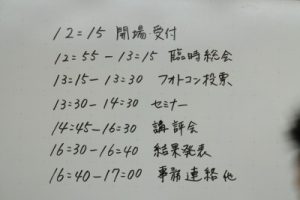 12=15 開場・受付
12=55-13=15 臨時総会
13=15-13=30 フォトコン投票
13=30-14=30 セミナー
14=45-16=30 講評会
16=30-16=40 結果発表
16=40-17=00 事務連絡他